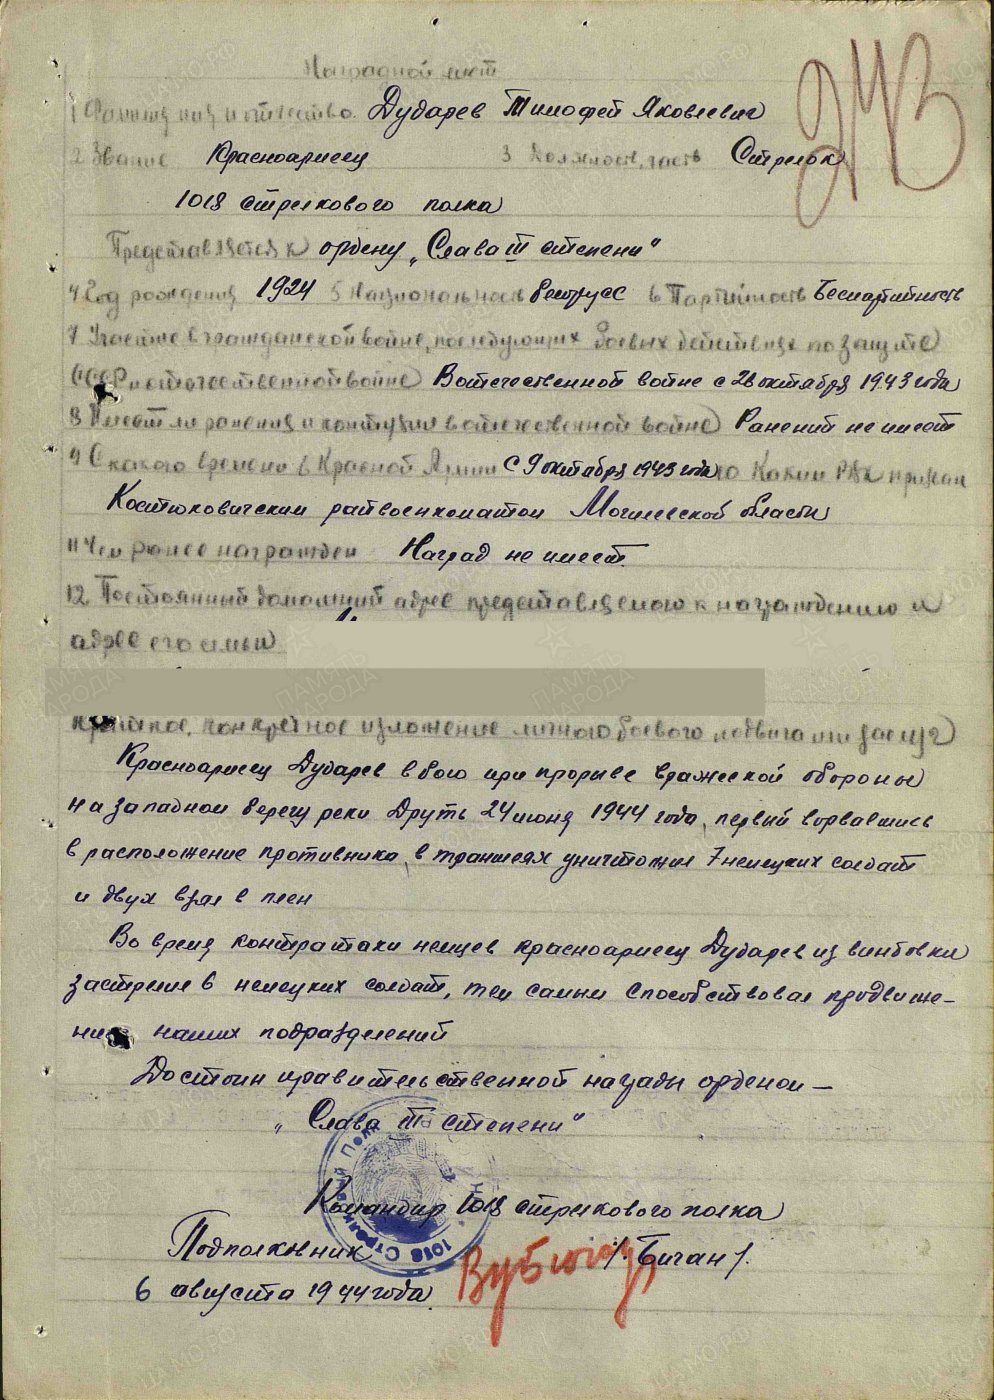 Наградной лист
1 Фамилия имя и отчество Дударев Тимофей Яковлевич
2 Звание Красноармеец 3 Должность, часть Стрелок
1018 стрелкового полка
Представляется к ордену „Слава III степени"
4 Год рождения 1924 5 Национальность белорусс 6 Партийность Беспартийность
7 Участие в гражданской войне, последующих боевых действиях по защите
СССР и отечественной войне В отечественной войне с 28 октября 1943 года
8 Имеет ли ранения и контузии в отечественной войне Ранений не имеет
9 С какого времени в Красной Армии С 9 октября 1943 года 10 Каким РВК призван
Костюковичским райвоенкоматом Могилевской области
11 Чем ранее награжден Наград не имеет
12 Постоянный домашний адрес представляемого к награждению и
адрес его семьи
Краткое, конкретное изложение личного боевого подвига или заслуг
Красноармеец Дударев в бою при прорыве вражеской обороны
на западном берегу реки Друть 24 июня 1944 года, первый ворвавшись
в расположение противника, в траншеях уничтожил 7 немецких солдат
и двух взял в плен
Во время контратаки немцев красноармеец Дударев из винтовки
застрелил 6 немецких солдат, тем самым способствовал продвиже-
нию наших подразделений
Достоин правительственной награды орденом —
„Слава III степени"
Командир 1018 стрелкового полка
Подполковник /. Бичан /.
6 августа 1944 года